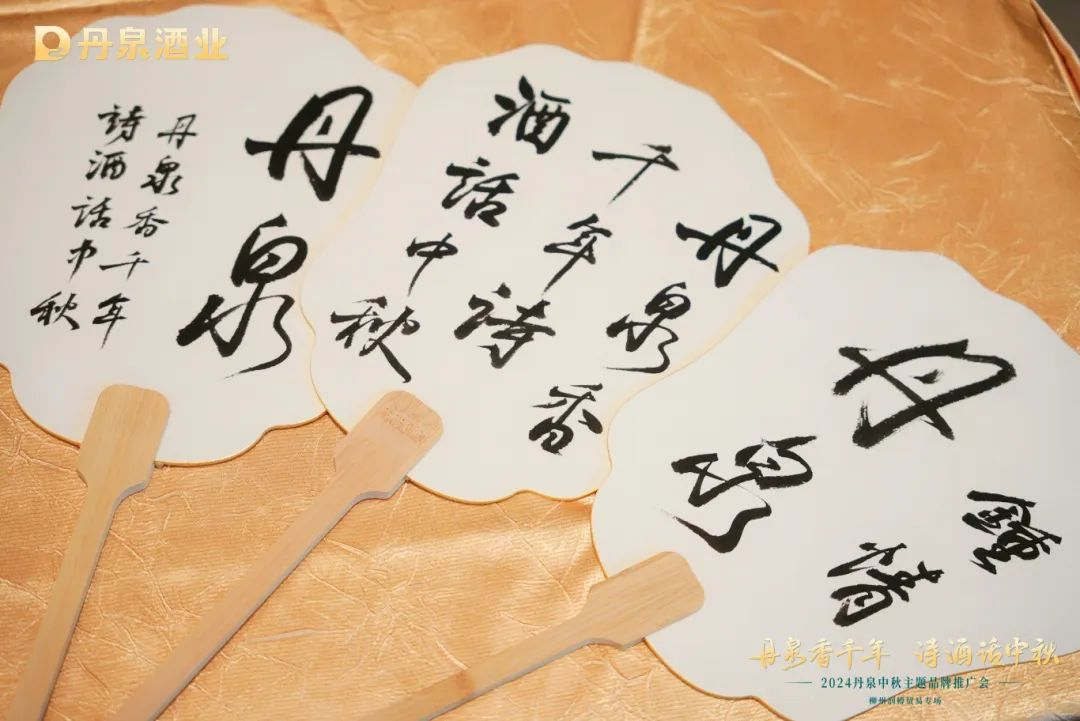 丹泉酒业
丹泉
丹泉香千年
詩酒話中秋
丹泉香
千年詩
酒話中秋
丹泉
丹泉香千年 诗酒话中秋
2024丹泉中秋主题品牌推广会
柳州润樽贸易专场